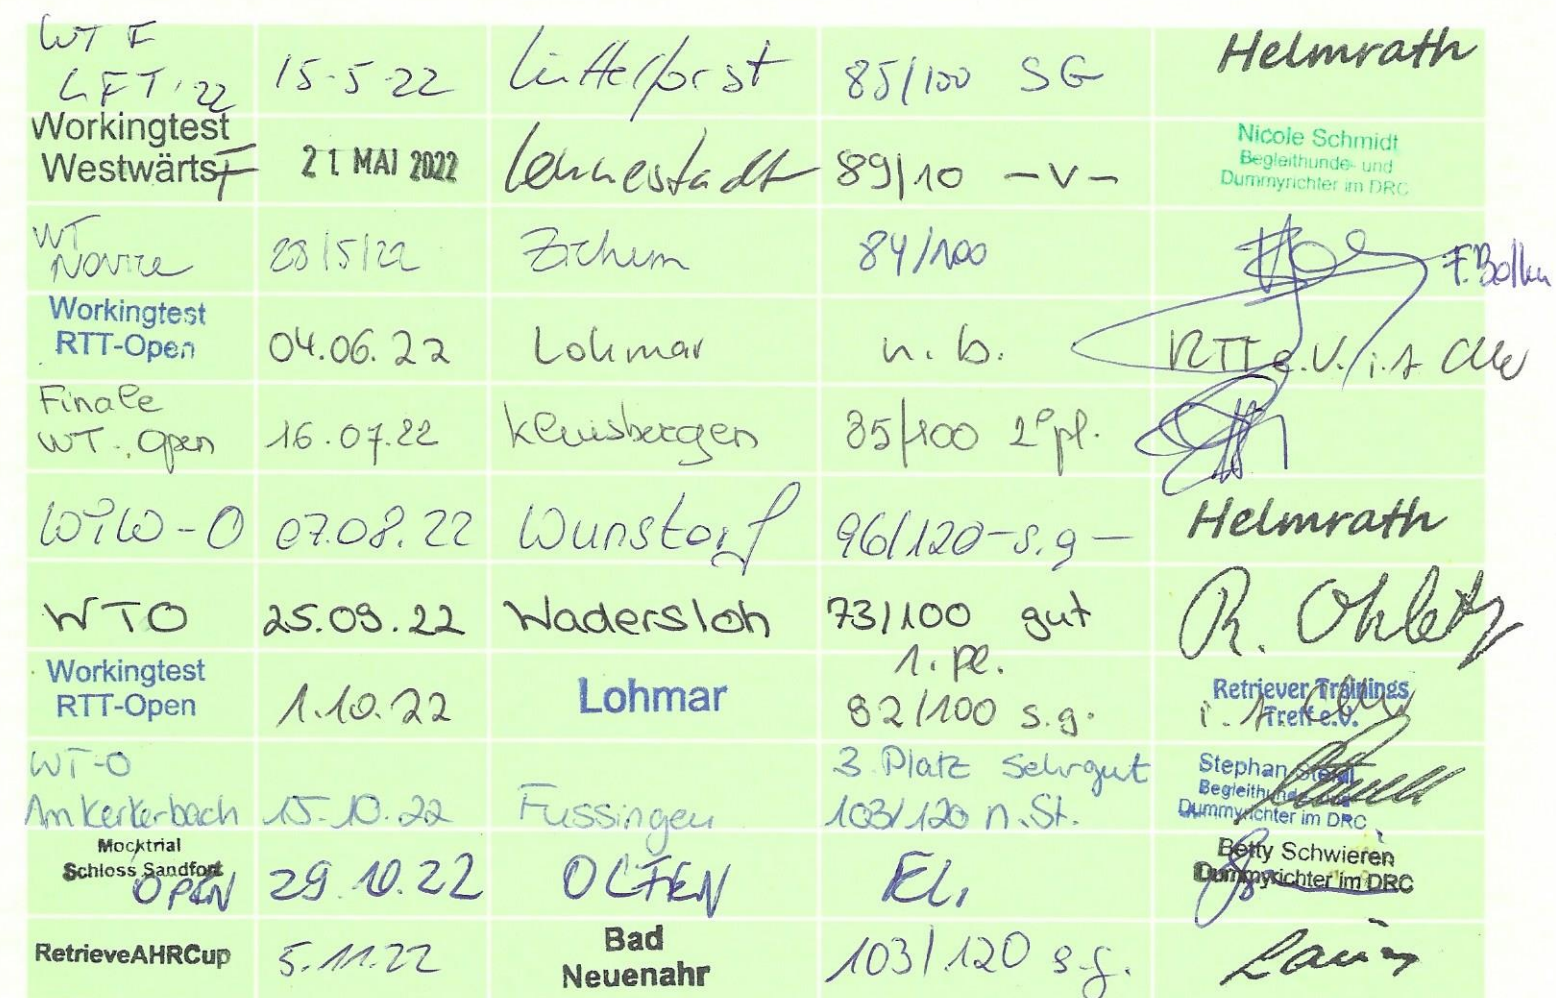 WT F
LFT '22 15-5-22 Lüttelforst 85/100 SG Helmrath
Workingtest
Westwärts F 21 MAI 2022 Lennestadt 89/10 -V- Nicole Schmidt
Begleithunde- und
Dummyrichter im DRC
WT
Novice 28/5/22 Zichem 84/100 F. Bollen
Workingtest
RTT-Open 04.06.22 Lohmar n.b. RTT e.V. i.A
Finale
WT. Open 16.07.22 Kluisbergen 85/100 2e pl.
WiW-O 07.08.22 Wunstorf 96/120 -s.g- Helmrath
WTO 25.09.22 Wadersloh 73/100 gut R. Ohletz
Workingtest
RTT-Open 1.10.22 Lohmar 1. Pl.
82/100 s.g. Retriever Trainings
Treff e.V.
i.A
WT-O
Am Kerkerbach 15.10.22 Fussingen 3. Platz Sehrgut
103/120 n.St. Stephan
Begleithunde-
Dummyrichter im DRC
Mocktrial
Schloss Sandfort
OPEN 29.10.22 OLFEN El. Betty Schwieren
Dummyrichter im DRC
RetrieveAHRCup 5.11.22 Bad
Neuenahr 103/120 s.g.